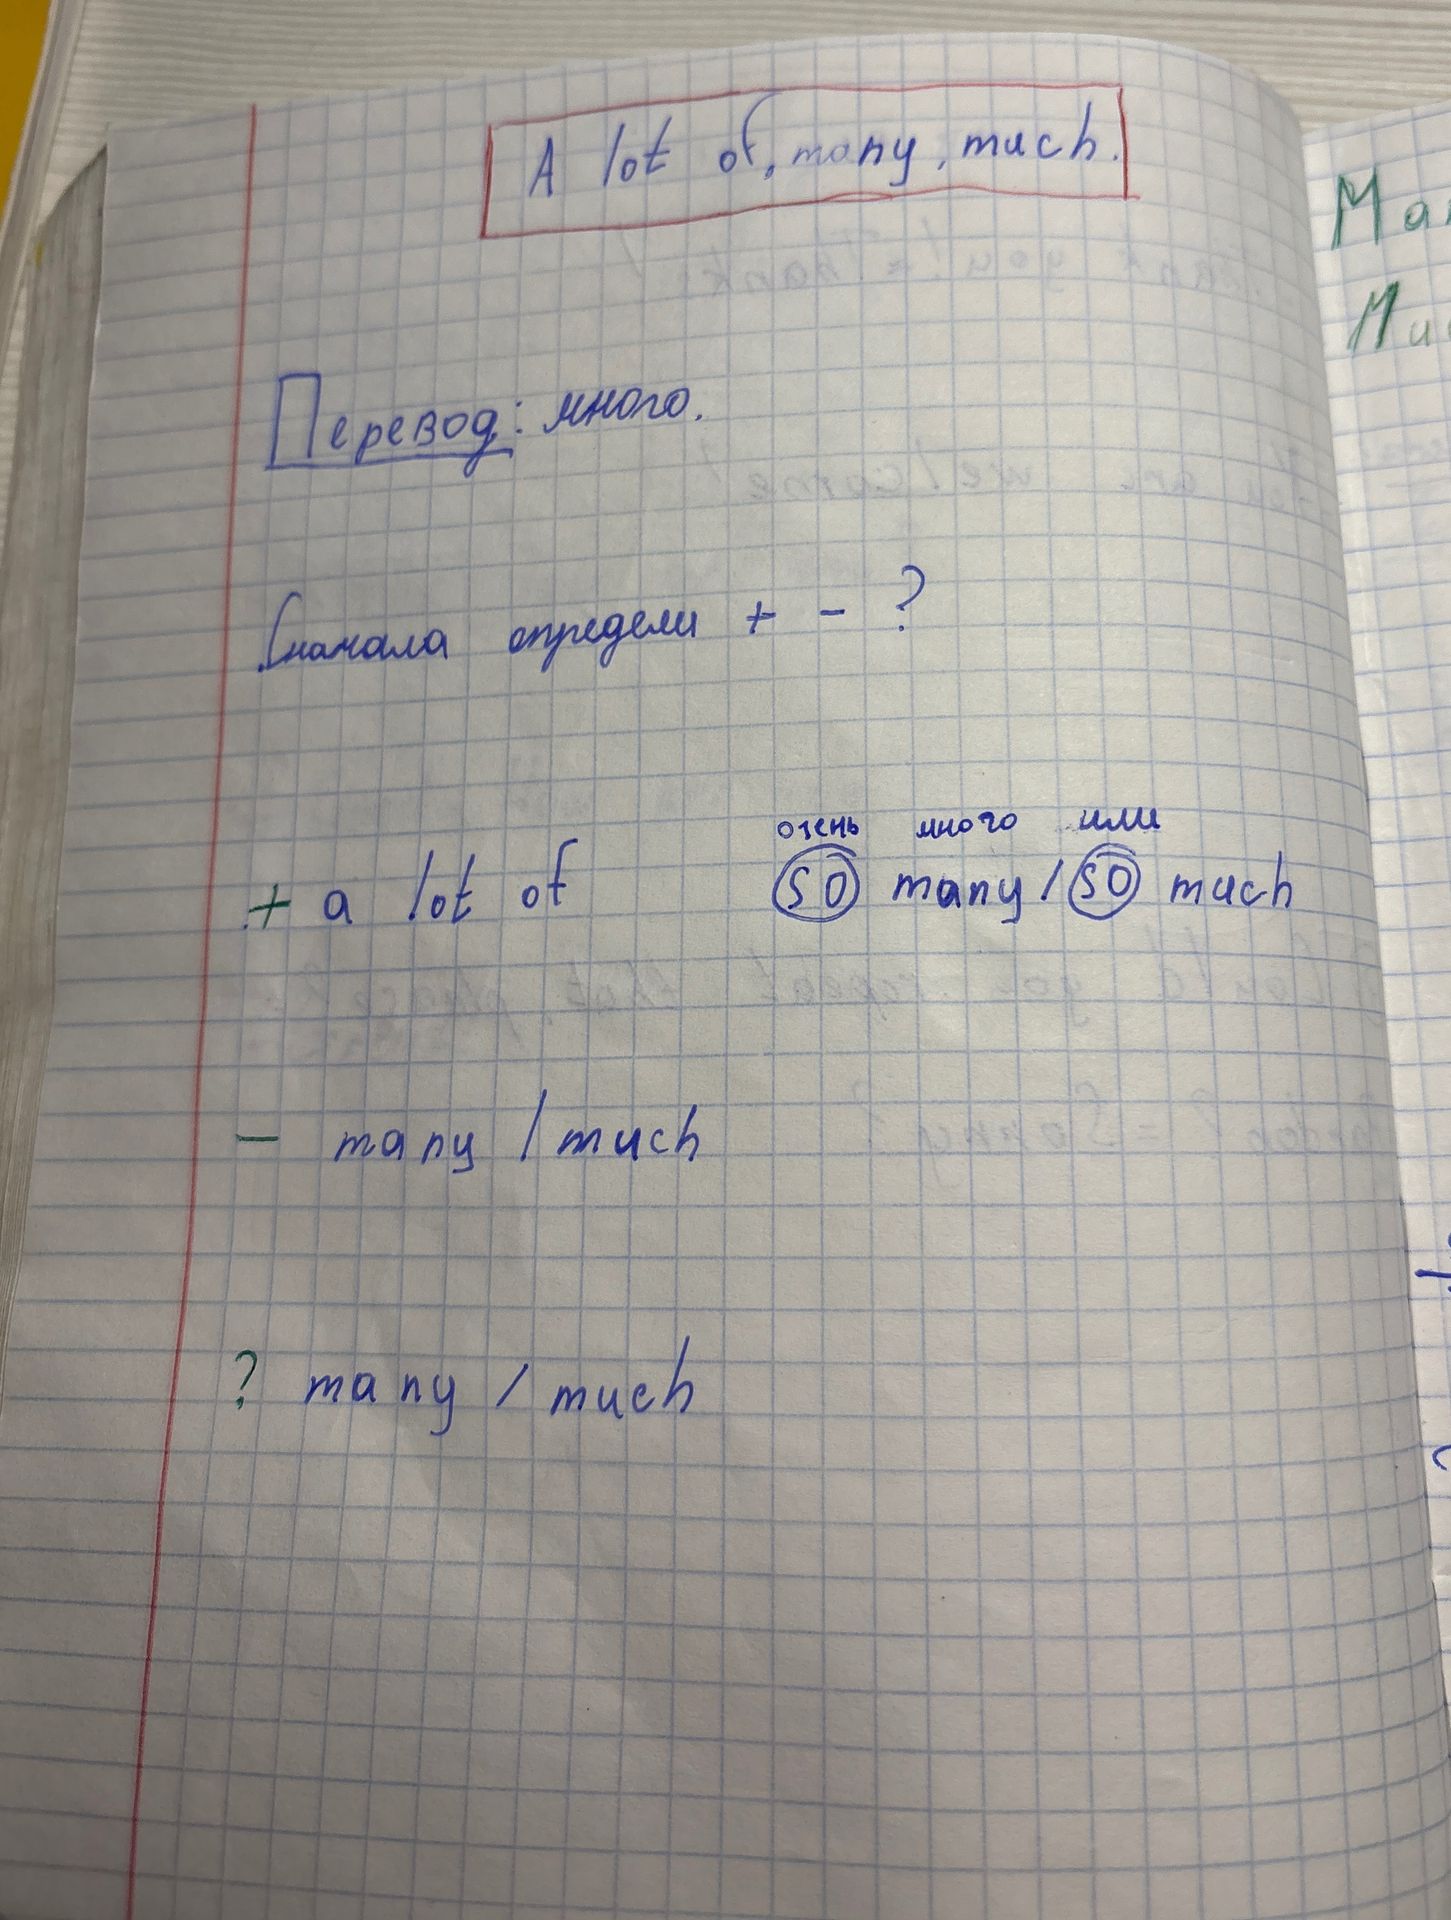 A lot of, many, much.
Перевод: много.
Сначала определи + - ?
очень много или
+ a lot of so many / so much
- many / much
? many / much